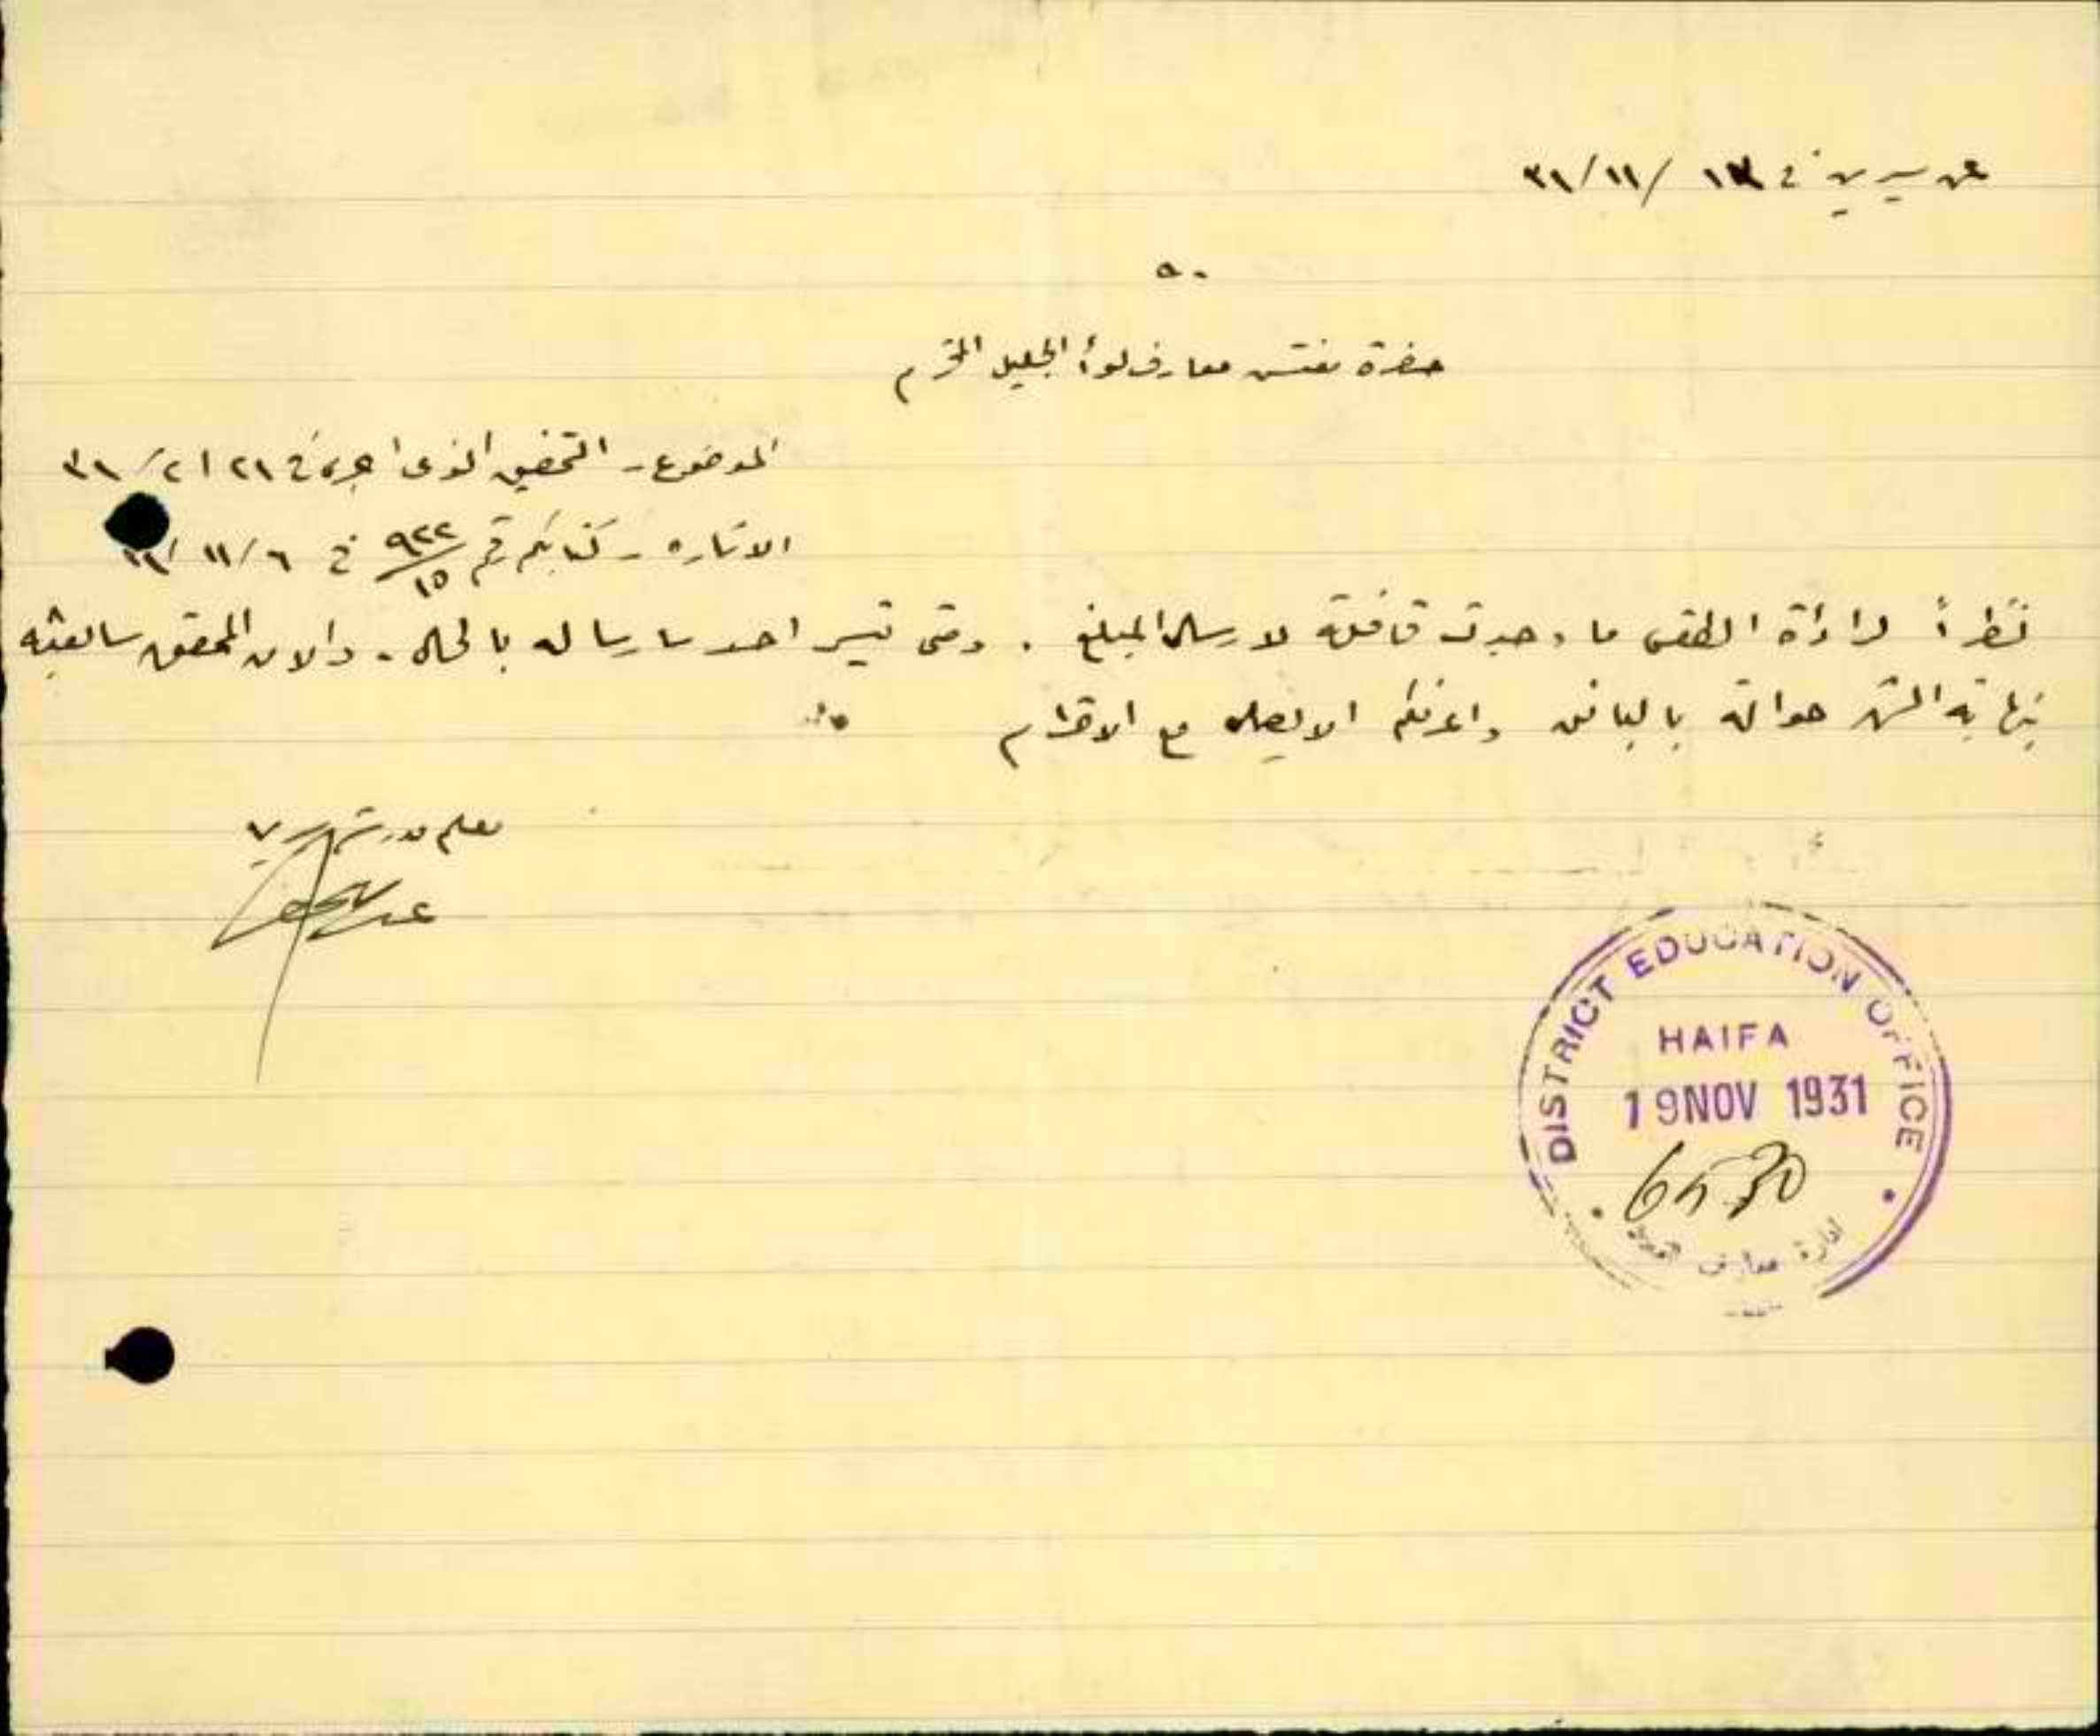 عن سيرين في ١٣ /١١/٣١
٥٠
حضرة مفتش معارف لوأ الجليل المحترم
الموضوع - التحقيق الذى اجري في ٢١ / ٢/ ٣١
الاشاره - كتابكم رقم ٩٢٢/١٥ في ٦ /١١/ ٣١
نظراً لردأة الطقس ما وجدت قافلة لارسال المبلغ . ومتى تيسر احد سارساله بالحال - والان المحقق سابعثه
نهاية الشهر حوالة بالباقي واعرفكم الايصال مع الاحترام
معلم مدرسة سيرين
DISTRICT EDUCATION OFFICE
HAIFA
19 NOV 1931
6530
ادارة معارف